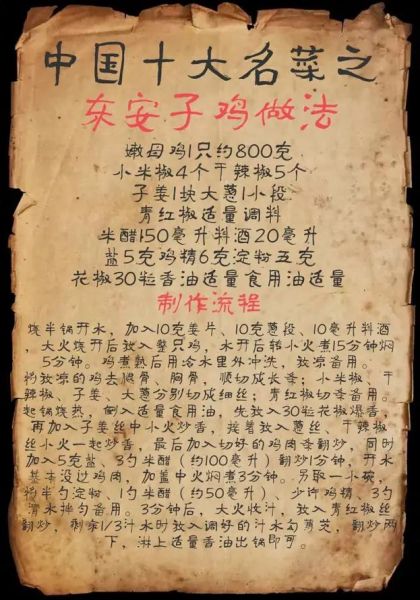 中国十大名菜之
东安子鸡做法
嫩母鸡1只约800克
小米椒4个干辣椒5个
子姜1块大葱1小段
青红椒适量调料
米醋150毫升料酒20毫升
盐5克鸡精6克淀粉五克
花椒30粒香油适量食用油适量
制作流程
烧半锅开水，加入10克姜片、10克葱段、10毫升料酒
，大火烧开后放入整只鸡，水开后转小火煮15分钟焖
5分钟。鸡煮熟后用冷水里外冲洗，放凉备用。
将放凉的鸡去腿骨、胸骨，顺切成长条；小米椒、干
辣椒、子姜、大葱分别切成细丝；青红椒切条备用。
起锅烧热，倒入适量食用油，先放入30粒花椒爆香，
再加入子姜丝中小火炒香，接着放入葱丝、干辣椒
丝小火一起炒香，最后加入切好的鸡肉条翻炒，同时
加入5克盐、3勺米醋（约100毫升）翻炒1分钟，开水
基本没过鸡肉，加盖中火焖煮3分钟。另取一小碗，
将半勺淀粉、1勺米醋（约50毫升）、少许鸡精、3勺
清水拌匀备用。3分钟后，大火收汁，放入青红椒丝
翻炒，剩余1/3汁水时放入调好的汁水勾芡，翻炒两
下，淋上适量香油出锅即可。